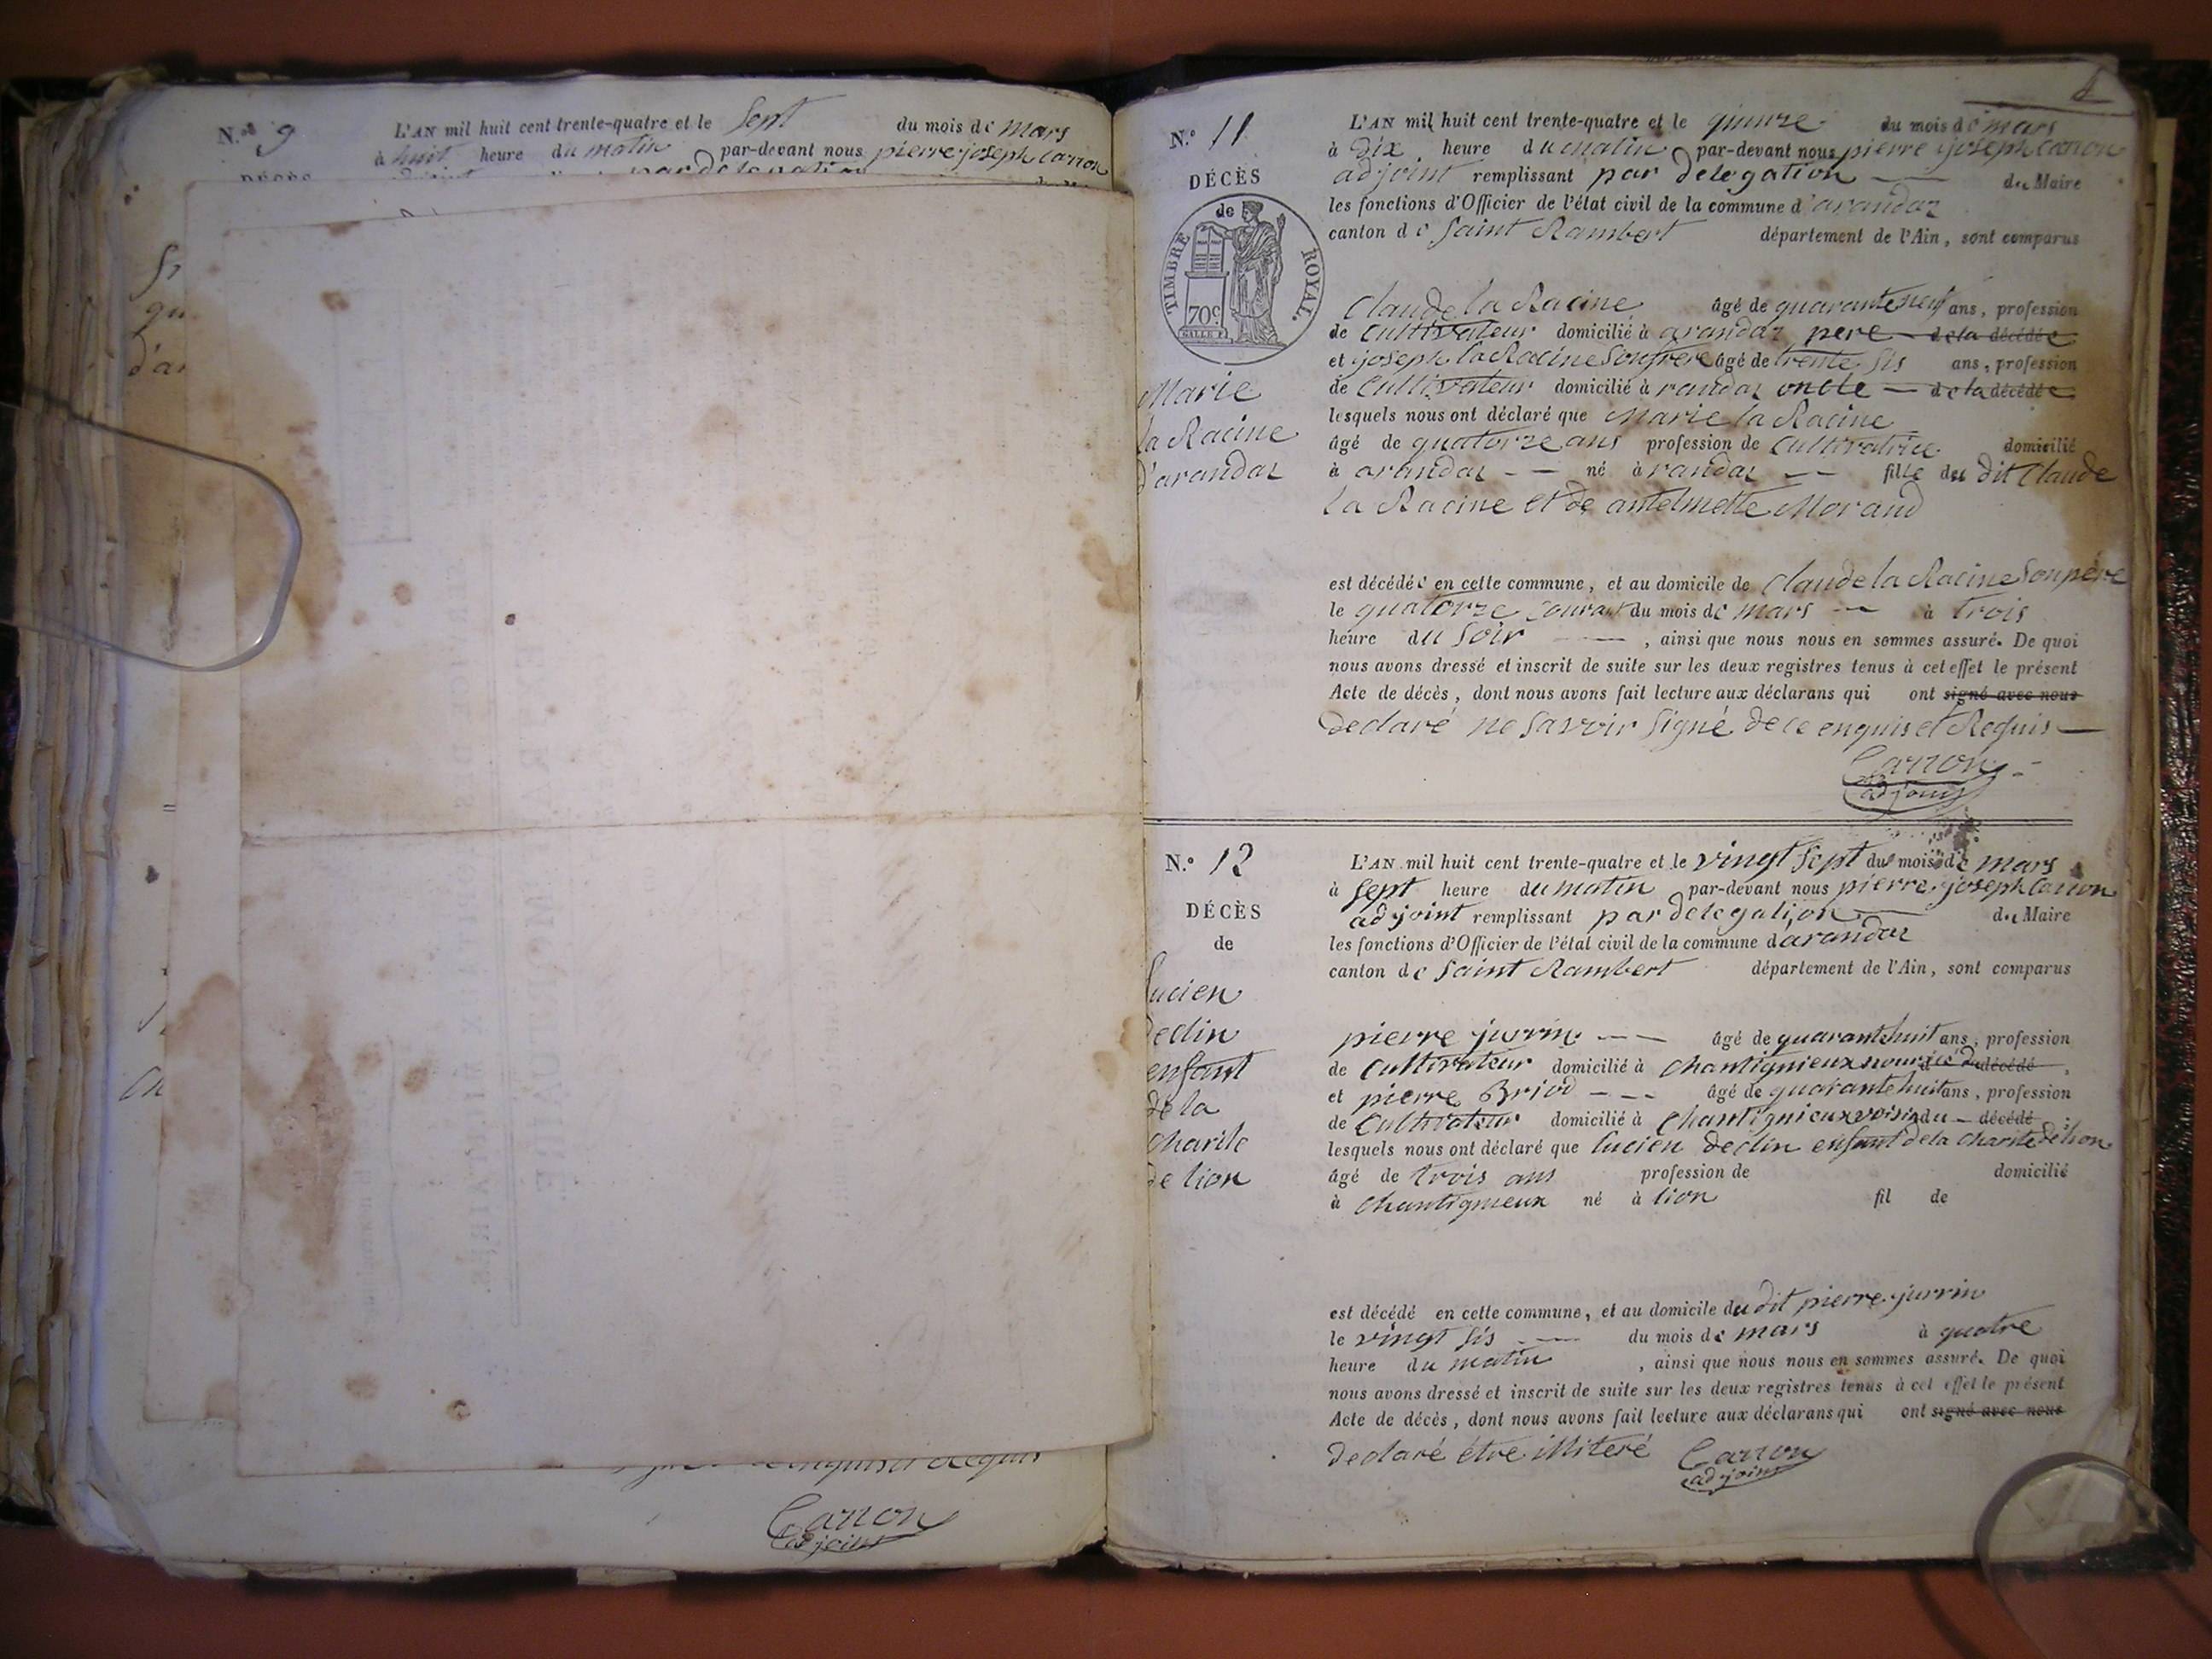 N.º 9
L'AN mil huit cent trente-quatre et le Sept du mois de mars
à huit heure du matin par-devant nous pierre joseph Carron
DÉCÈS par delegation
qu
d'ar
Carron
adjoint
N.º 11
DÉCÈS
de
TIMBRE ROYAL.
70c
Marie
la Racine
d'arandaz
L'AN mil huit cent trente-quatre et le quinze du mois de mars
à Dix heure du matin par-devant nous pierre joseph Carron
adjoint remplissant par delegation du Maire
les fonctions d'Officier de l'état civil de la commune d'arandaz
canton de Saint Rambert département de l'Ain, sont comparus
Claude la Racine âgé de quarante neuf ans, profession
de Cultivateur domicilié à arandaz pere de la décédée
et joseph la Racine Son frere âgé de trente Sis ans, profession
de Cultivateur domicilié à randaz oncle de la décédée
lesquels nous ont déclaré que Marie la Racine
âgé de quatorze ans profession de Cultivatrice domicilié
à arandaz né à randaz fille du dit Claude
la Racine et de antelmette Morand
est décédée en cette commune, et au domicile de Claude la Racine Son pére
le quatorze Courant du mois de mars à trois
heure du Soir , ainsi que nous nous en sommes assuré. De quoi
nous avons dressé et inscrit de suite sur les deux registres tenus à cet effet le présent
Acte de décès, dont nous avons fait lecture aux déclarans qui ont signé avec nous
declaré ne Savoir Signé de ce enquis et Requis
Carron
adjoint
N.º 12
DÉCÈS
de
Lucien
declin
enfant
de la
Charite
de lion
L'AN mil huit cent trente-quatre et le vingt Sept du mois de mars
à Sept heure du matin par-devant nous pierre joseph Carron
adjoint remplissant par delegation du Maire
les fonctions d'Officier de l'état civil de la commune d'arandaz
canton de Saint Rambert département de l'Ain, sont comparus
pierre juvrin âgé de quarante huit ans, profession
de Cultivateur domicilié à Chantignieux décédé,
et pierre Briod âgé de quarante huit ans, profession
de Cultivateur domicilié à Chantignieux voisin du décédé
lesquels nous ont déclaré que lucien declin enfant de la charite de lion
âgé de trois ans profession de domicilié
à Chantignieux né à lion fil de
est décédé en cette commune, et au domicile du dit pierre juvrin
le vingt Sis du mois de mars à quatre
heure du matin , ainsi que nous nous en sommes assuré. De quoi
nous avons dressé et inscrit de suite sur les deux registres tenus à cet effet le présent
Acte de décès, dont nous avons fait lecture aux déclarans qui ont signé avec nous
declaré étre illiteré Carron
adjoint